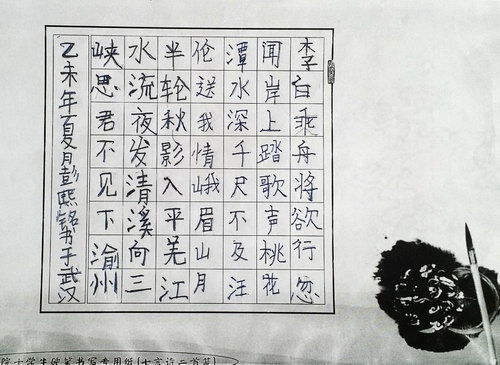 李白乘舟将欲行忽
闻岸上踏歌声桃花
潭水深千尺不及汪
伦送我情峨眉山月
半轮秋影入平羌江
水流夜发清溪向三
峡思君不见下渝州
乙未年夏月彭熙铭书于武汉
学生硬笔书写专用纸(七言诗二首